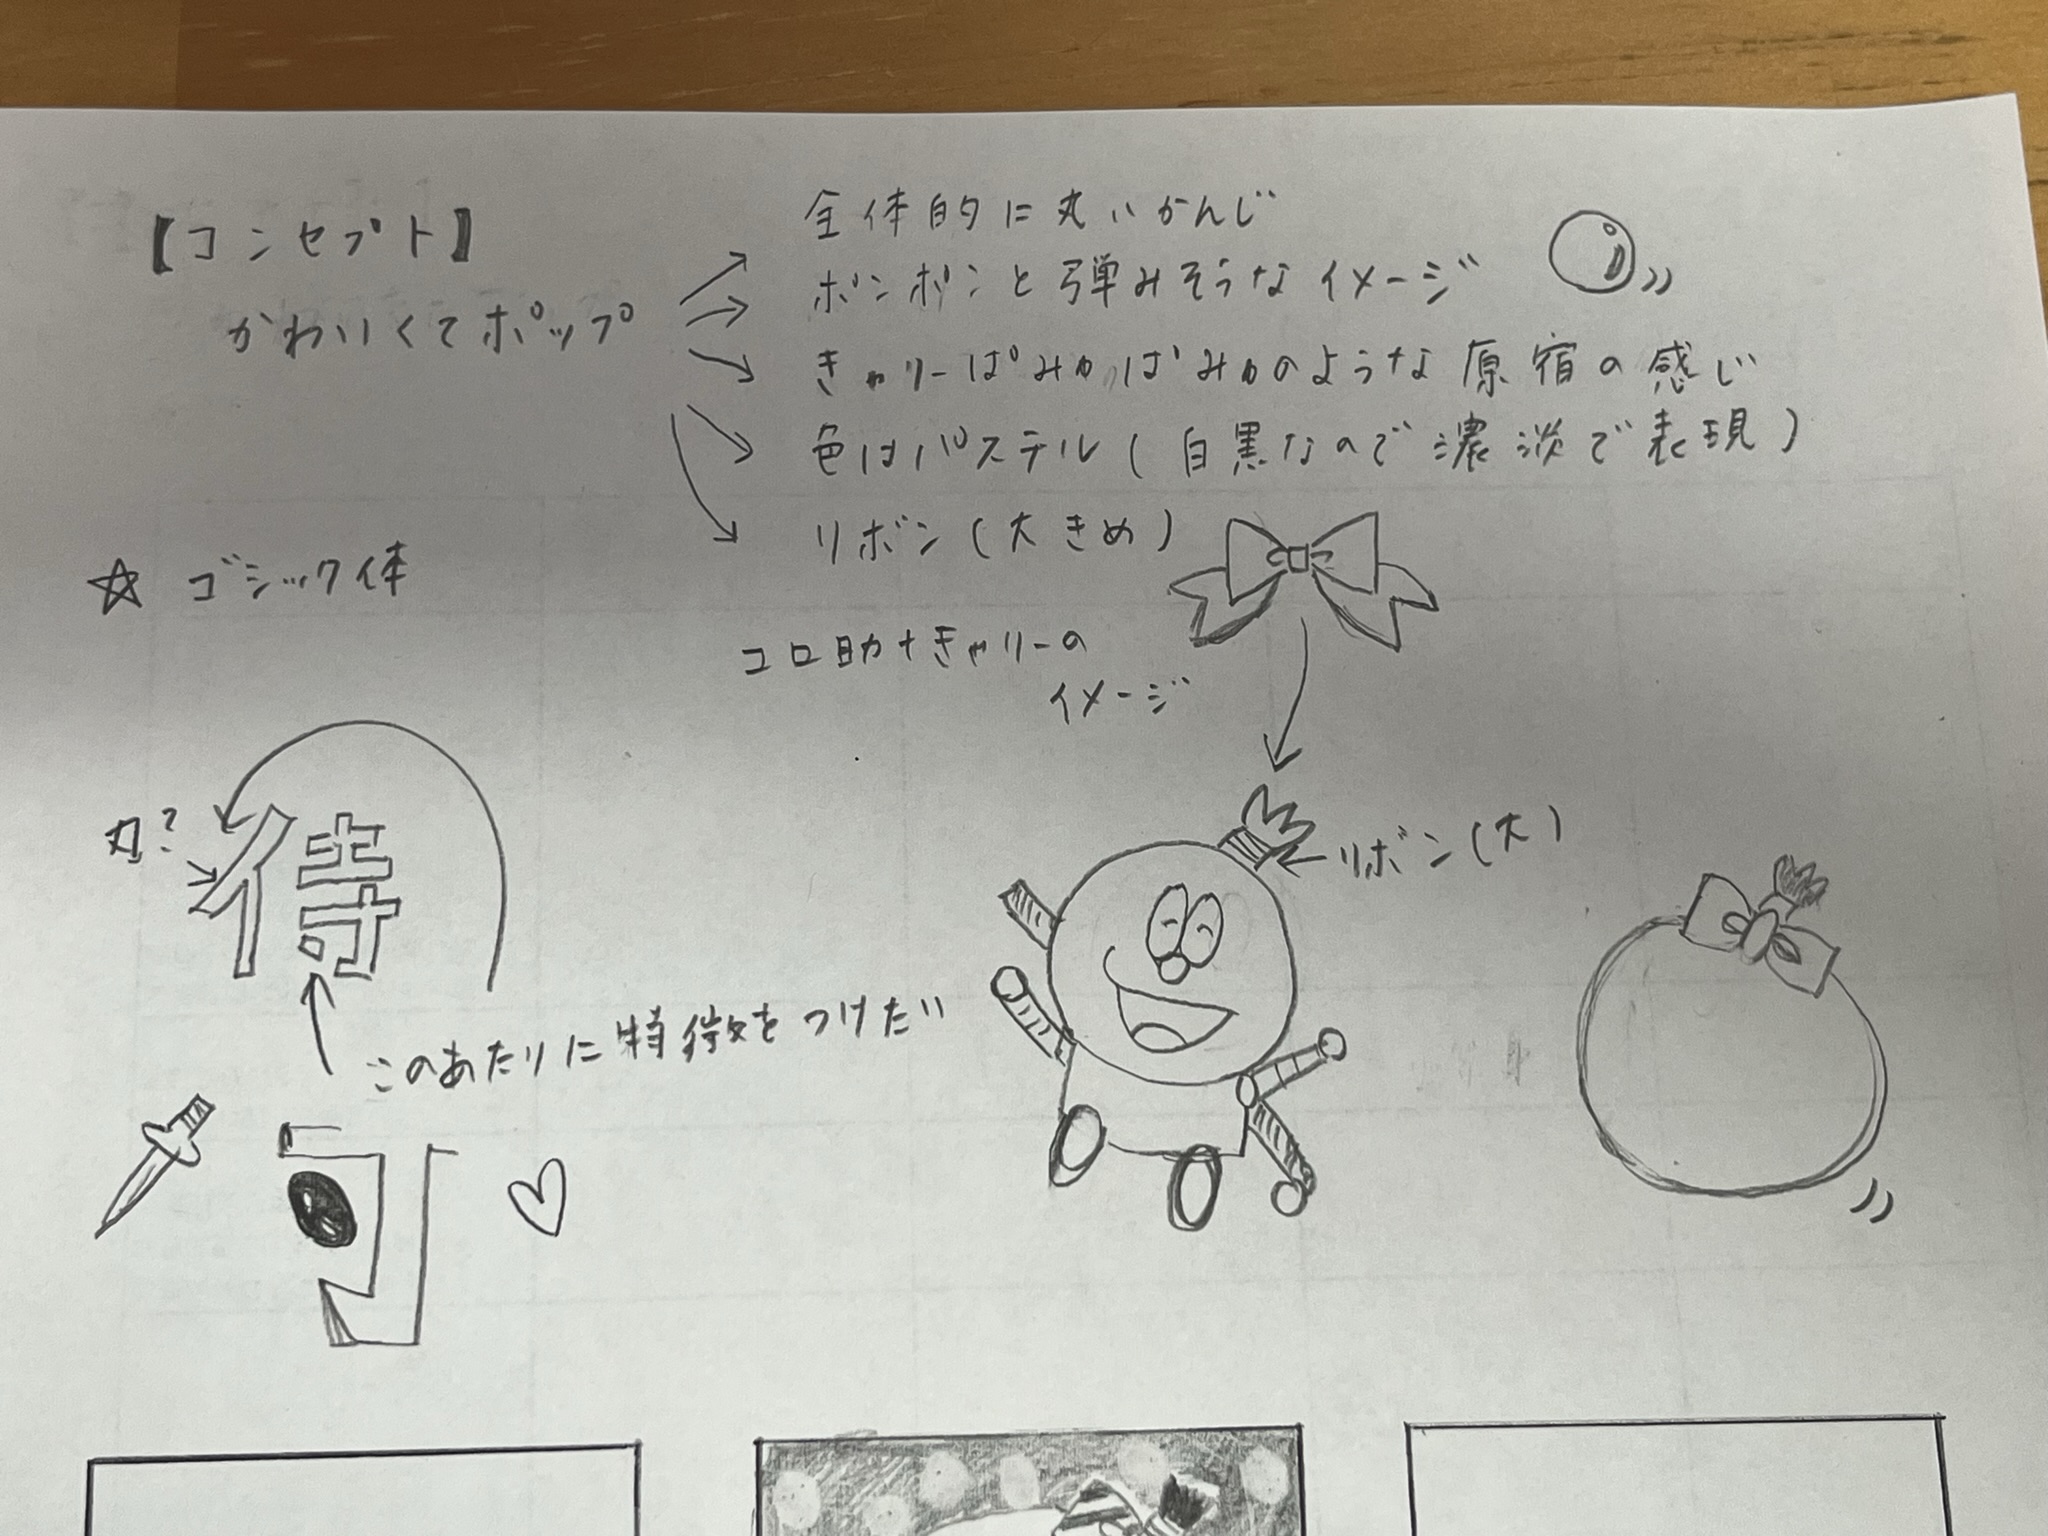 【コンセプト】
かわいくてポップ
全体的に丸いかんじ
ボンボンと弾みそうなイメージ
きゃりーぱみゅぱみゅのような原宿の感じ
色はパステル(白黒なので濃淡で表現)
リボン(大きめ)
☆ ゴシック体
コロ助+きゃりーの
イメージ
刀?
待
このあたりに特徴をつけたい
リボン(大)